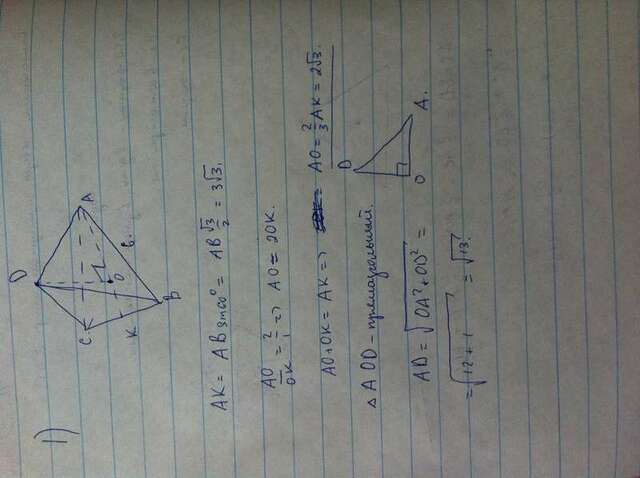 1)
D
C
A
O
K
6.
B
AK = AB sin60° = AB √3/2 = 3√3.
AO/OK = 2/1 => AO = 2OK.
AO+OK = AK => = AO = 2/3 AK = 2√3.
△ AOD - прямоугольный.
D
O
A.
AD = √OA²+OD² =
= √12 + 1 = √13.